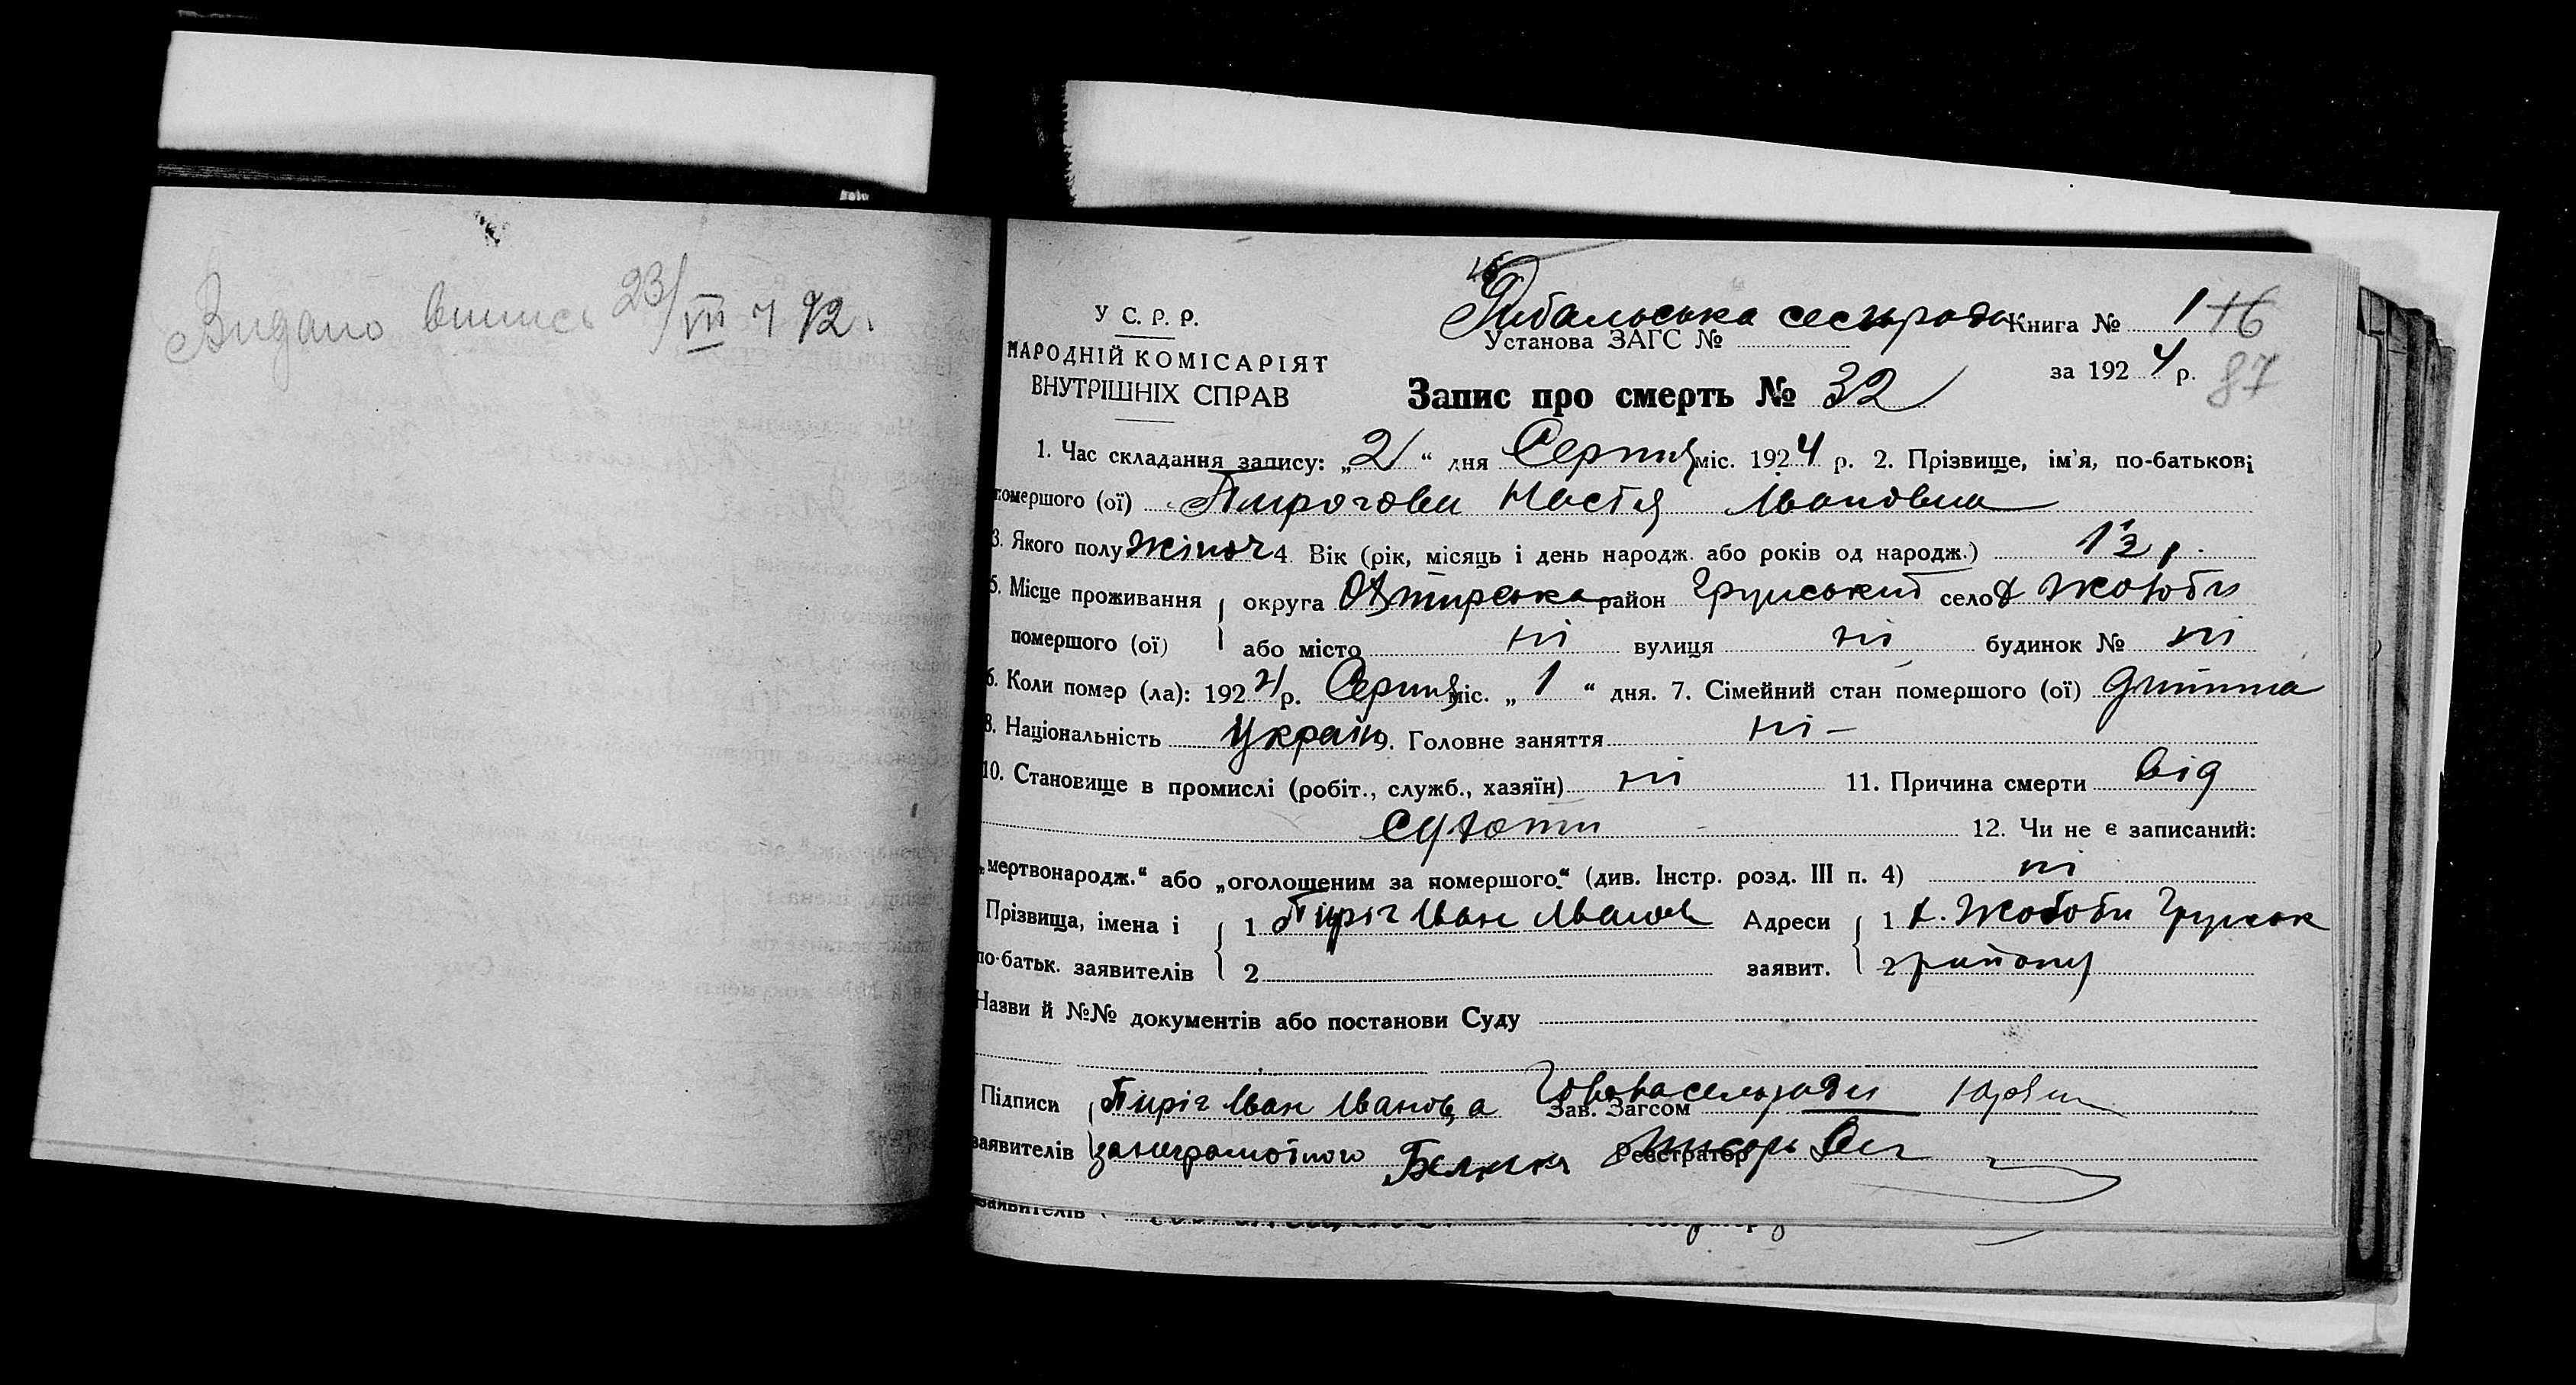 Видано випись 23/VII
У С. Р. Р.
НАРОДНІЙ КОМІСАРІЯТ
ВНУТРІШНІХ СПРАВ
Рибальська сельрада Книга № 1
Установа ЗАГС №
за 1924 р. 87
Запис про смерть № 32
1. Час складання запису: „2“ дня Серпня міс. 1924 р. 2. Прізвище, ім'я, по-батькові
помершого (ої) Пирогова Настя Ивановна
3. Якого полу жіноч 4. Вік (рік, місяць і день народж. або років од народж.)
5. Місце проживання округа Охтирська район Грунський село х Жолоби
помершого (ої) або місто ні вулиця ні будинок № ні
6. Коли помер (ла): 1924 р. Серпня міс. „ 1 “ дня. 7. Сімейний стан помершого (ої) дитина
8. Національність Україн 9. Головне заняття ні –
10. Становище в промислі (робіт., служб., хазяїн) ні 11. Причина смерти від
сухоти 12. Чи не є записаний:
„мертвонародж.“ або „оголошеним за помершого“ (див. Інстр. розд. III п. 4) ні
Прізвища, імена і 1 Пиріг Иван Иванов Адреси 1 х. Жолоби Грунськ
по-батьк. заявителів 2 заявит. 2 району
Назви й №№ документів або постанови Суду
Підписи Пиріг Иван Иванов, а Голова сельради
Зав. Загсом
заявителів за неграмотного Реєстратор Писарь
заявителів